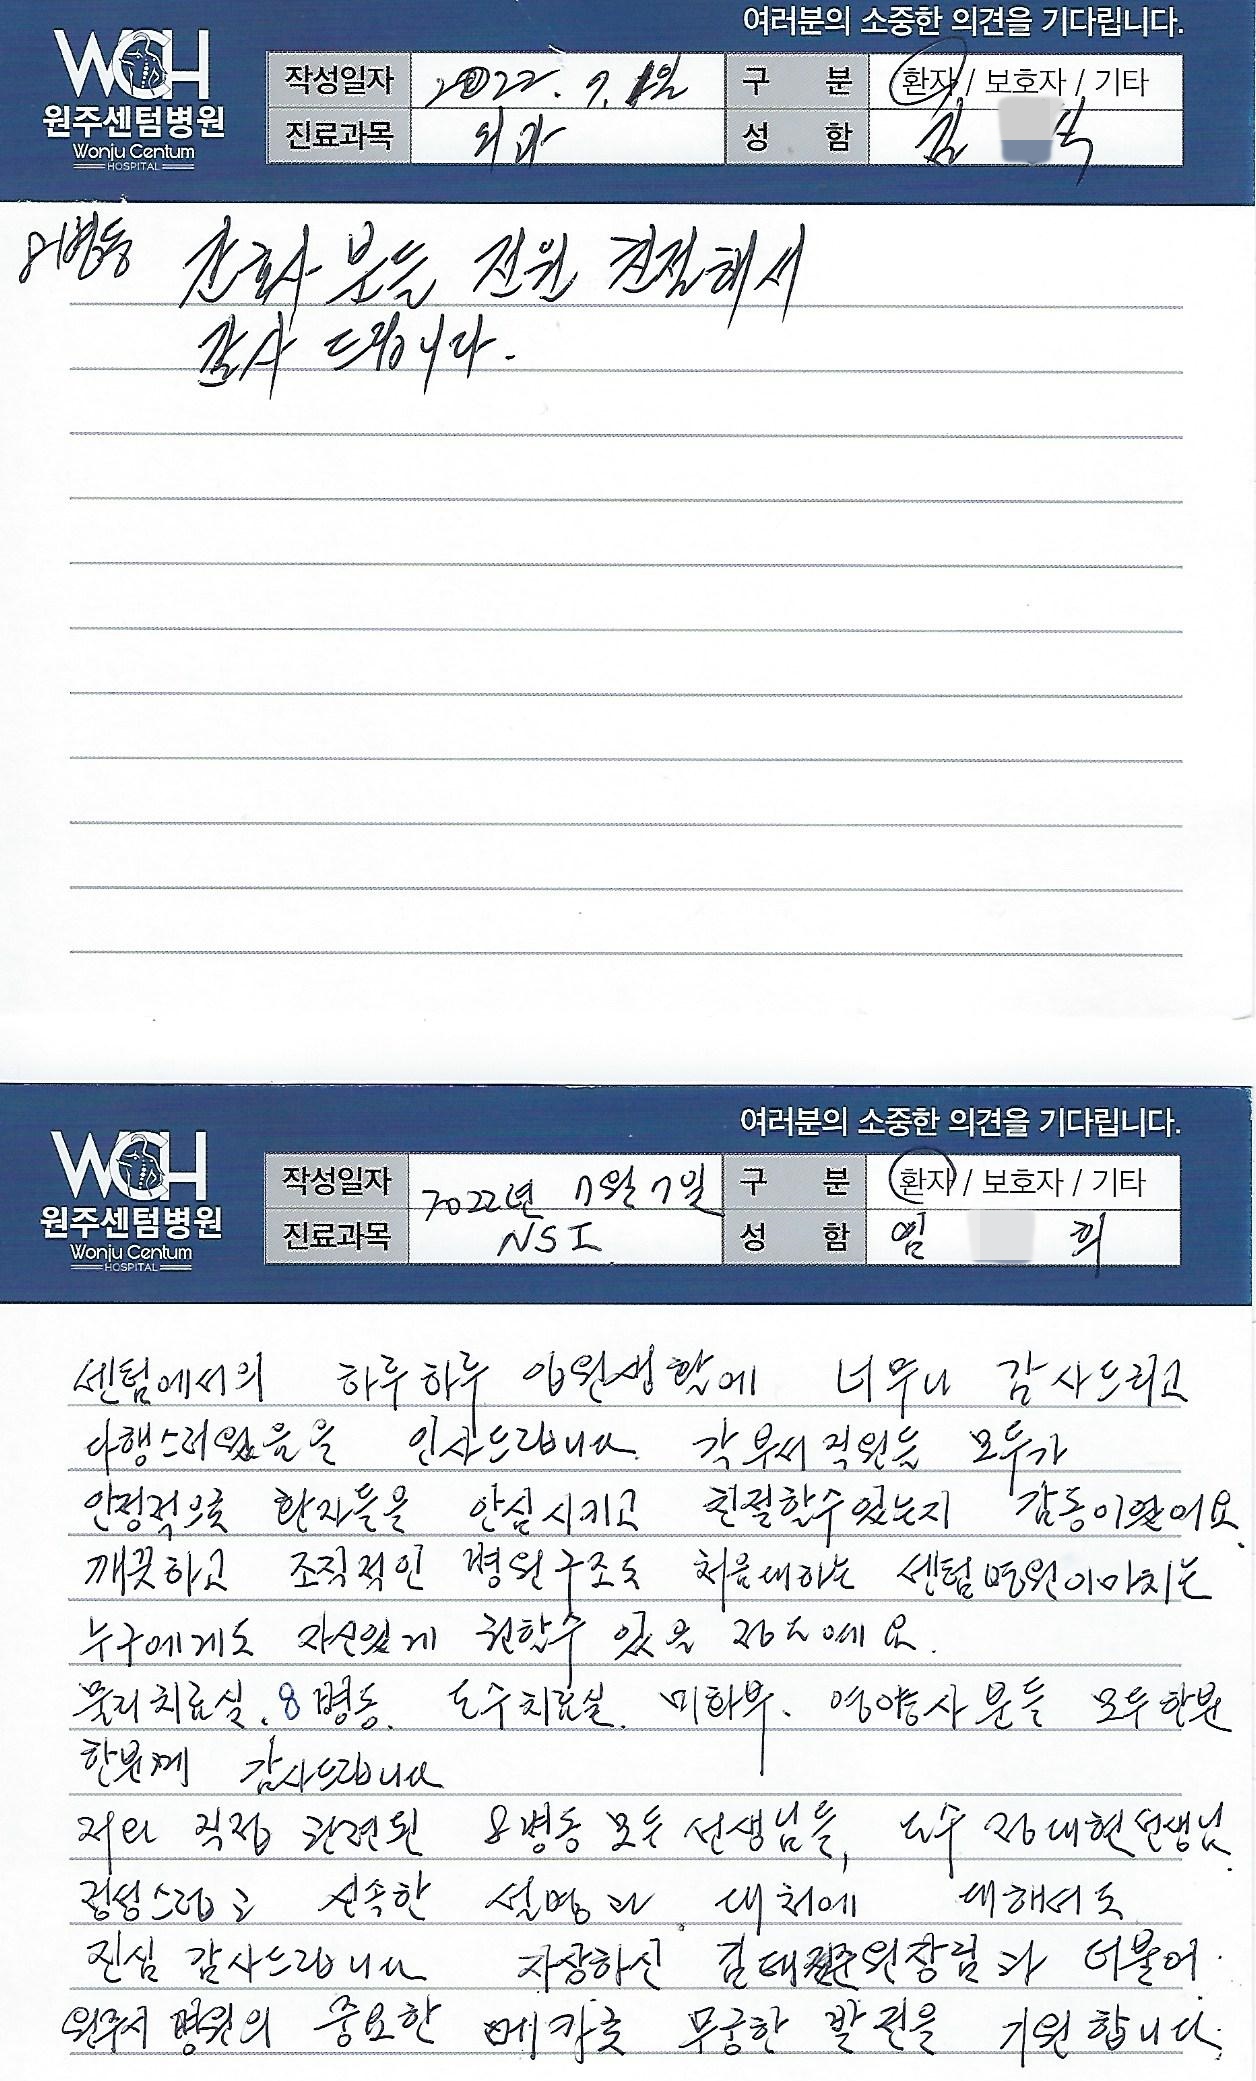 여러분의 소중한 의견을 기다립니다.
WCH
원주센텀병원
Wonju Centum
HOSPITAL
작성일자 2022. 7. 1일 구 분 환자 / 보호자 / 기타
진료과목 외과 성 함 김
8병동 간호사 분들 전원 친절해서
감사 드립니다.
여러분의 소중한 의견을 기다립니다.
WCH
원주센텀병원
Wonju Centum
HOSPITAL
작성일자 2022년 7월 7일 구 분 환자 / 보호자 / 기타
진료과목 NSI 성 함 임 희
센텀에서의 하루하루 입원생활에 너무나 감사드리고
다행스러웠음을 인사드립니다. 각 부서 직원들 모두가
안정적으로 환자들을 안심시키고 친절할수있는지 감동이었어요.
깨끗하고 조직적인 병원구조도 처음대하는 센텀병원이미지는
누구에게도 자신있게 권할수 있을 정도예요.
물리치료실. 8병동. 도수치료실. 미화부. 영양사분들 모두한분
한분께 감사드립니다
저와 직접 관련된 8병동 모든 선생님들, 도수 정대현선생님
정성스럽고 신속한 설명과 대처에 대해서도
진심 감사드립니다 자상하신 김대 원장님과 더불어
원주시 병원의 중요한 메카로 무궁한 발전을 기원합니다.